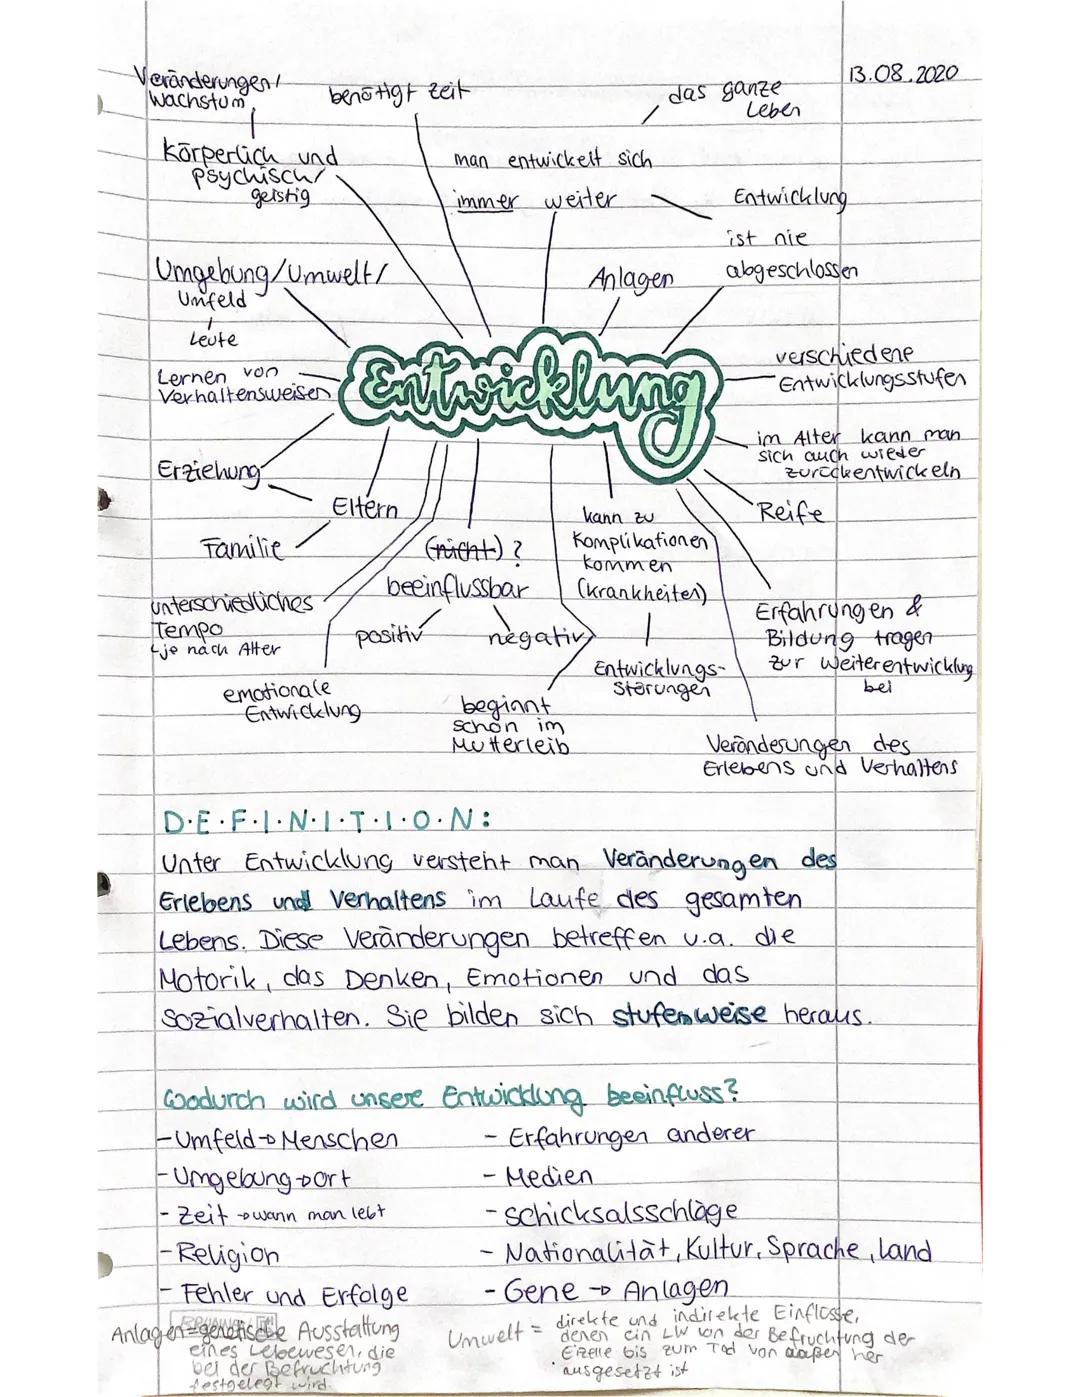 13.08.2020
Veränderungen/
Wachstum
benötigt Zeit
das ganze
Leben
Körperlich und
psychisch/
geistig
man entwickelt sich
immer weiter
Entwicklung
ist nie
abgeschlossen
Umgebung/Umwelt/
Umfeld
Leute
Anlagen
Lernen von
Verhaltensweisen
Entwicklung
verschiedene
Entwicklungsstufen
im Alter kann man
sich auch wieder
zurückentwickeln
Erziehung
Eltern
Familie
Reife
(nicht)?
beeinflussbar
positiv
negativ
kann zu
Komplikationen
kommen
(Krankheiten)
Entwicklungs-
störungen
unterschiedliches
Tempo
↳je nach Alter
Erfahrungen &
Bildung tragen
zur Weiterentwicklung
bei
emotionale
Entwicklung
beginnt
schon im
Mutterleib
Veränderungen des
Erlebens und Verhaltens
D.E.F.I.N.I.T.I.O.N:
Unter Entwicklung versteht man Veränderungen des
Erlebens und Verhaltens im Laufe des gesamten
Lebens. Diese Veränderungen betreffen u.a. die
Motorik, das Denken, Emotionen und das
Sozialverhalten. Sie bilden sich stufenweise heraus.
Wodurch wird unsere Entwicklung beeinfluss?
- Umfeld → Menschen
- Umgebung → Ort
- Zeit → wann man lebt
- Religion
- Fehler und Erfolge
- Erfahrungen anderer
- Medien
- Schicksalsschläge
- Nationalität, Kultur, Sprache, Land
- Gene → Anlagen
Anlagen = genetische Ausstattung
eines Lebewesen, die
bei der Befruchtung
festgelegt wird.
Umwelt = direkte und indirekte Einflüsse,
denen ein LW von der Befruchtung der
Eizelle bis zum Tod von außen her
ausgesetzt ist